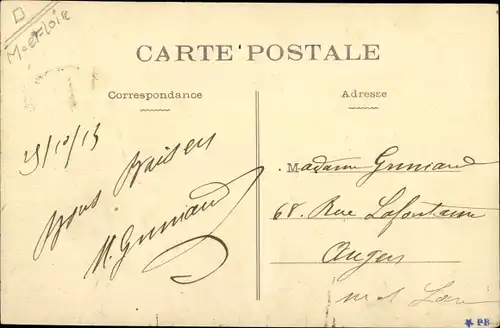 M-et-Loire
CARTE POSTALE
Correspondance
Adresse
25/10/13
Bons Baisers
M.
Madame
68. Rue Lafontaine
Angers
M et Loire
BB